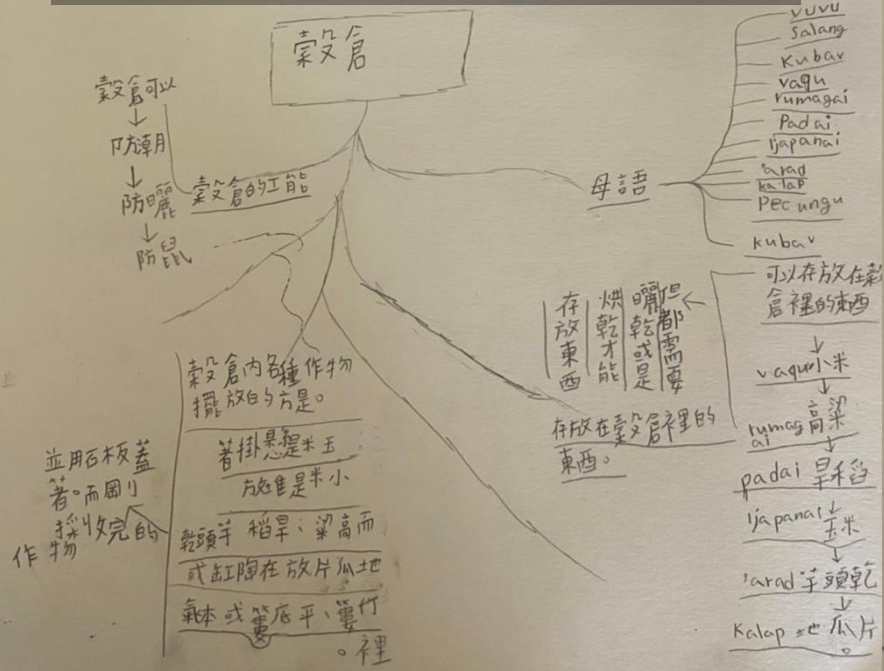 穀倉
穀倉可以
防潮
防曬
防鼠
穀倉的工能
母語
vuvu
Salang
Kubav
vaqu
rumagai
Padai
ljapanai
'arad
kalap
Pecungu
kubav
可以存放在穀
倉裡的東西
vaqu小米
rumagai高粱
padai 旱稻
ljapanai 玉米
'arad芋頭乾
Kalap 地瓜片。
但都需要
曬乾或是
烘乾才能
存放東西
存放在穀倉裡的
東西。
穀倉內各種作物
擺放的方是。
玉米是懸掛著
小米是堆放
而高粱、旱稻 芋頭乾
地瓜片放在陶缸或
竹簍、平底簍或本氣
裡。
並用石板蓋
著。而剛
採收完的
作物